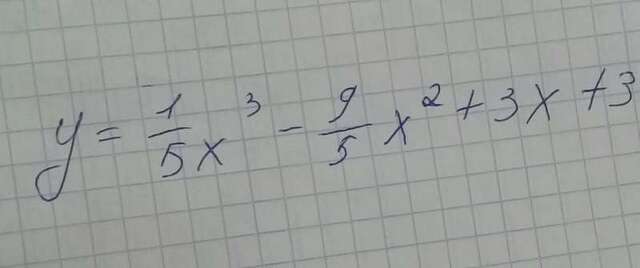 y = 1/5 x³ - 9/5 x² + 3x + 3